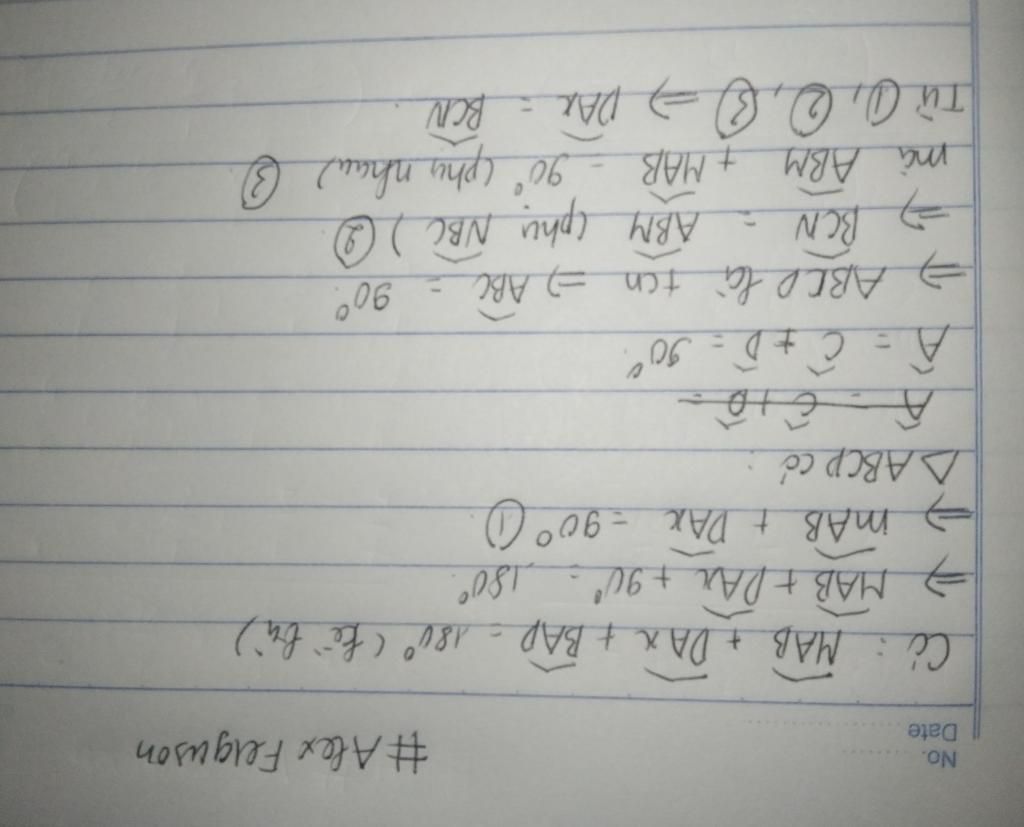 No.
Date
# Alex Ferguson
Có : MAB + DAx + BAD = 180° (kề bù)
⇒ MAB + DAx + 90° = 180°
⇒ MAB + DAx = 90° ①
△ ABCD có :
A = C + D =
A = C + D = 90°
⇒ ABCD là tcn ⇒ ABC = 90°
⇒ BCN = ABM (phụ NBC) ②
mà ABM + MAB = 90° (phụ nhau) ③
Từ ①, ②, ③ ⇒ DAx = BCN